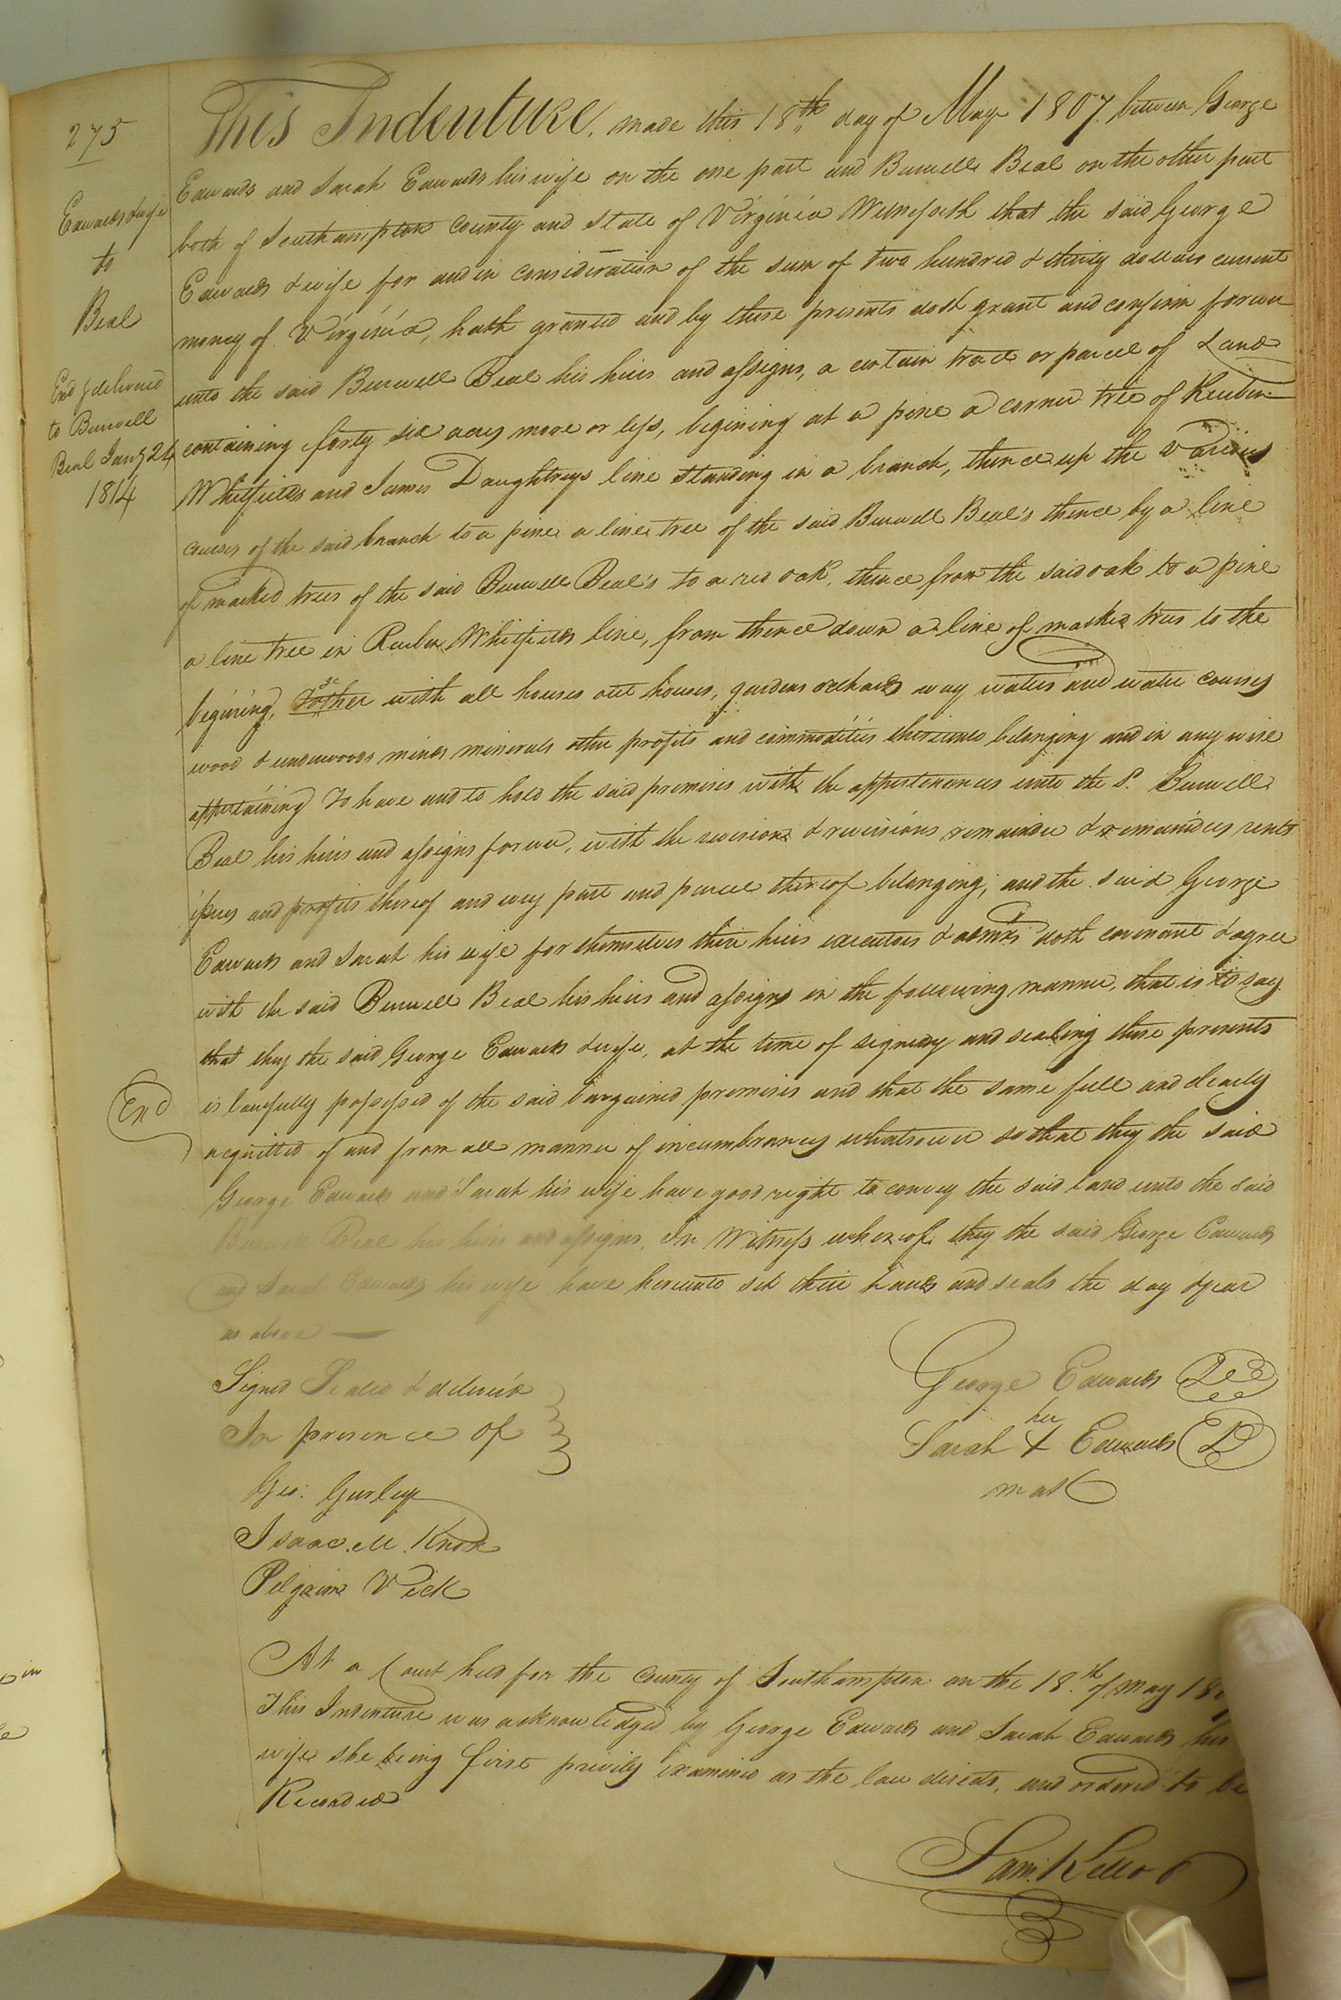 275
Edwards & wife
to
Beal
Exd & delivered
to Burwell
Beal Jany 24
1814
This Indenture, made this 18th day of May 1807 between George
Edwards and Sarah Edwards his wife on the one part and Burwell Beal on the other part
both of Southampton County and State of Virginia Witnesseth that the said George
Edwards & wife for and in consideration of the sum of two hundred & thirty dollars current
money of Virginia, hath granted and by these presents doth grant and confirm forever
unto the said Burwell Beal his heirs and assigns, a certain tract or parcel of Land
containing forty six acres more or less, begining at a pine a corner tree of Reuben
Whitfields and James Daughtreys line standing in a branch, thence up the various
courses of the said branch to a pine a line tree of the said Burwell Beal's thence by a line
of marked trees of the said Burwell Beal's to a red oak, thence from the said oak to a pine
a line tree in Reuben Whitfields line, from thence down a line of marked trees to the
begining, together with all houses out houses, gardens orchards way waters and water courses
wood & underwoods mines minerals other profits and commodities thereunto belonging and in any wise
appertaining To have and to hold the said premises with the appertenances unto the sd. Burwell
Beal his heirs and assigns forever, with the revisions & reversions remainder & remainders rents
issues and profits thereof and every part and parcel thereof belonging; and the said George
Edwards and Sarah his wife for themselves their heirs executors & admrs doth covenant & agree
with the said Burwell Beal his heirs and assigns in the following manner, that is to say
that they the said George Edwards & wife, at the time of signing and sealing these presents
is lawfully possessed of the said bargained premises and that the same full and clearly
Exd
acquitted of and from all manner of incumbrances whatsoever so that they the said
George Edwards and Sarah his wife have good right to convey the said land unto the said
Burwell Beal his heirs and assigns, In Witness whereof they the said George Edwards
and Sarah Edwards his wife have hereunto set their hands and seals the day & year
as above
Signed Sealed & deliver'd
In presence of
Geo: Gurley
Isaac M. Knox
Pilgrim Vick
George Edwards
her
Sarah X Edwards
mark
At a Court held for the county of Southampton on the 18th of May
This Indenture was acknowledged by George Edwards and Sarah Edwards his
wife she being first privily examined as the law directs, and ordered to be
Recorded
Sam: Kello